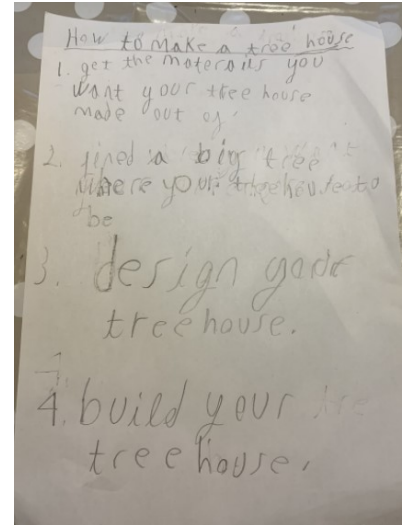 How to make a tree house
1. get the moterails you
want your tree house
made out of
2. fined a big tree
where your treehouse to
be
3. design your
treehouse.
4. build your tre
treehouse.